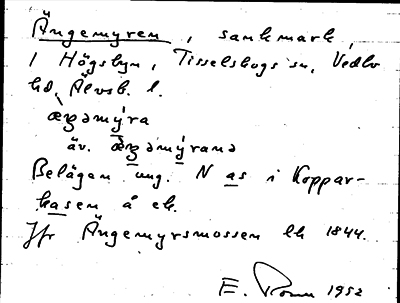 Ängemyren, sankmark,
i Högsbyn, Tisselskogs sn, Vedbo
hd, Älvsb. l.
æŋəmýra
äv. æ̀ŋəmýrana
Belägen ung. N as i Koppar-
kasen å ek.
Jfr Ängemyrsmossen lk 1844.
E. 1952